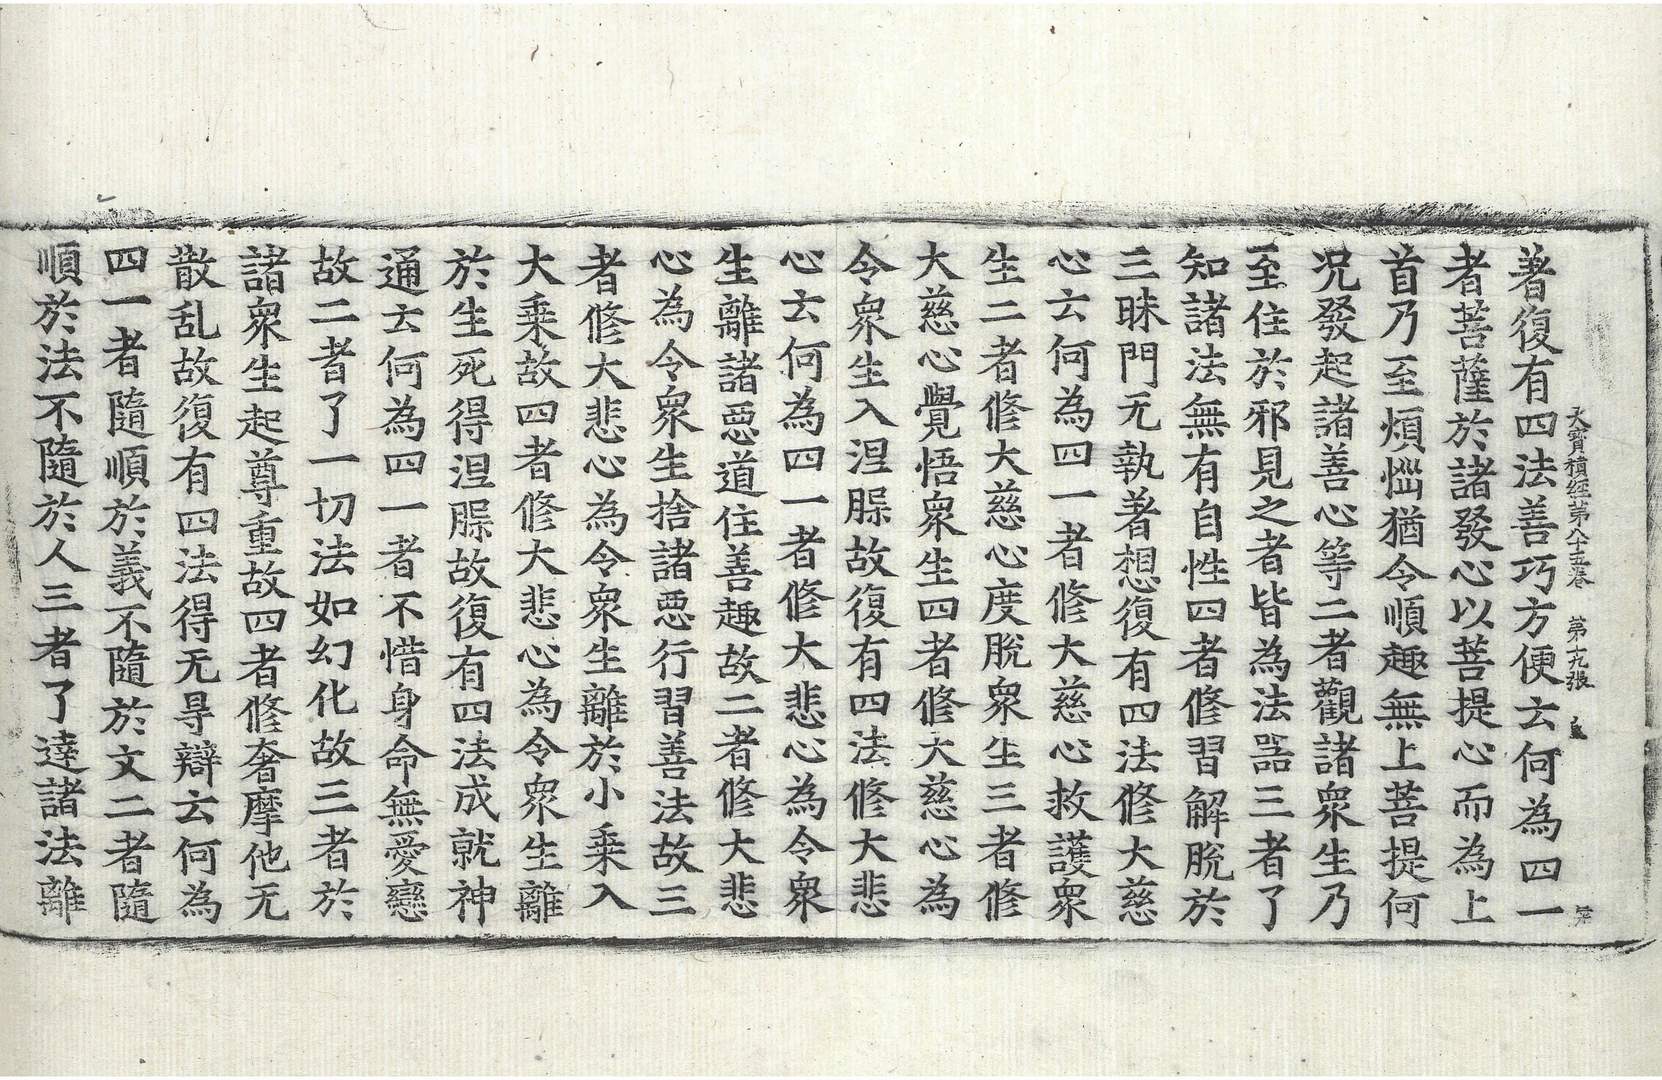 大寶積經第八十五卷　第十九張
著復有四法善巧方便云何為四一
者菩薩於諸發心以菩提心而為上
首乃至煩惱猶令順趣無上菩提何
况發起諸善心等二者觀諸衆生乃
至住於邪見之者皆為法噐三者了
知諸法無有自性四者修習解脫於
三昧門无執著想復有四法修大慈
心云何為四一者修大慈心救護衆
生二者修大慈心度脫衆生三者修
大慈心覺悟衆生四者修大慈心為
令衆生入涅槃故復有四法修大悲
心云何為四一者修大悲心為令衆
生離諸惡道住善趣故二者修大悲
心為令衆生捨諸惡行習善法故三
者修大悲心為令衆生離於小乗入
大乗故四者修大悲心為令衆生離
於生死得涅槃故復有四法成就神
通云何為四一者不惜身命無愛戀
故二者了一切法如幻化故三者於
諸衆生起尊重故四者修奢摩他无
散乱故復有四法得无㝵辯云何為
四一者隨順於義不隨於文二者隨
順於法不隨於人三者了達諸法離